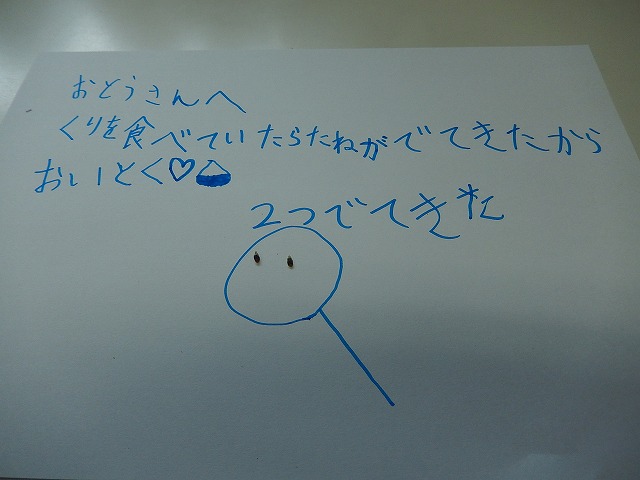 おとうさんへ
くりを食べていたらたねがでてきたから
おいとく♡
2つでてきた